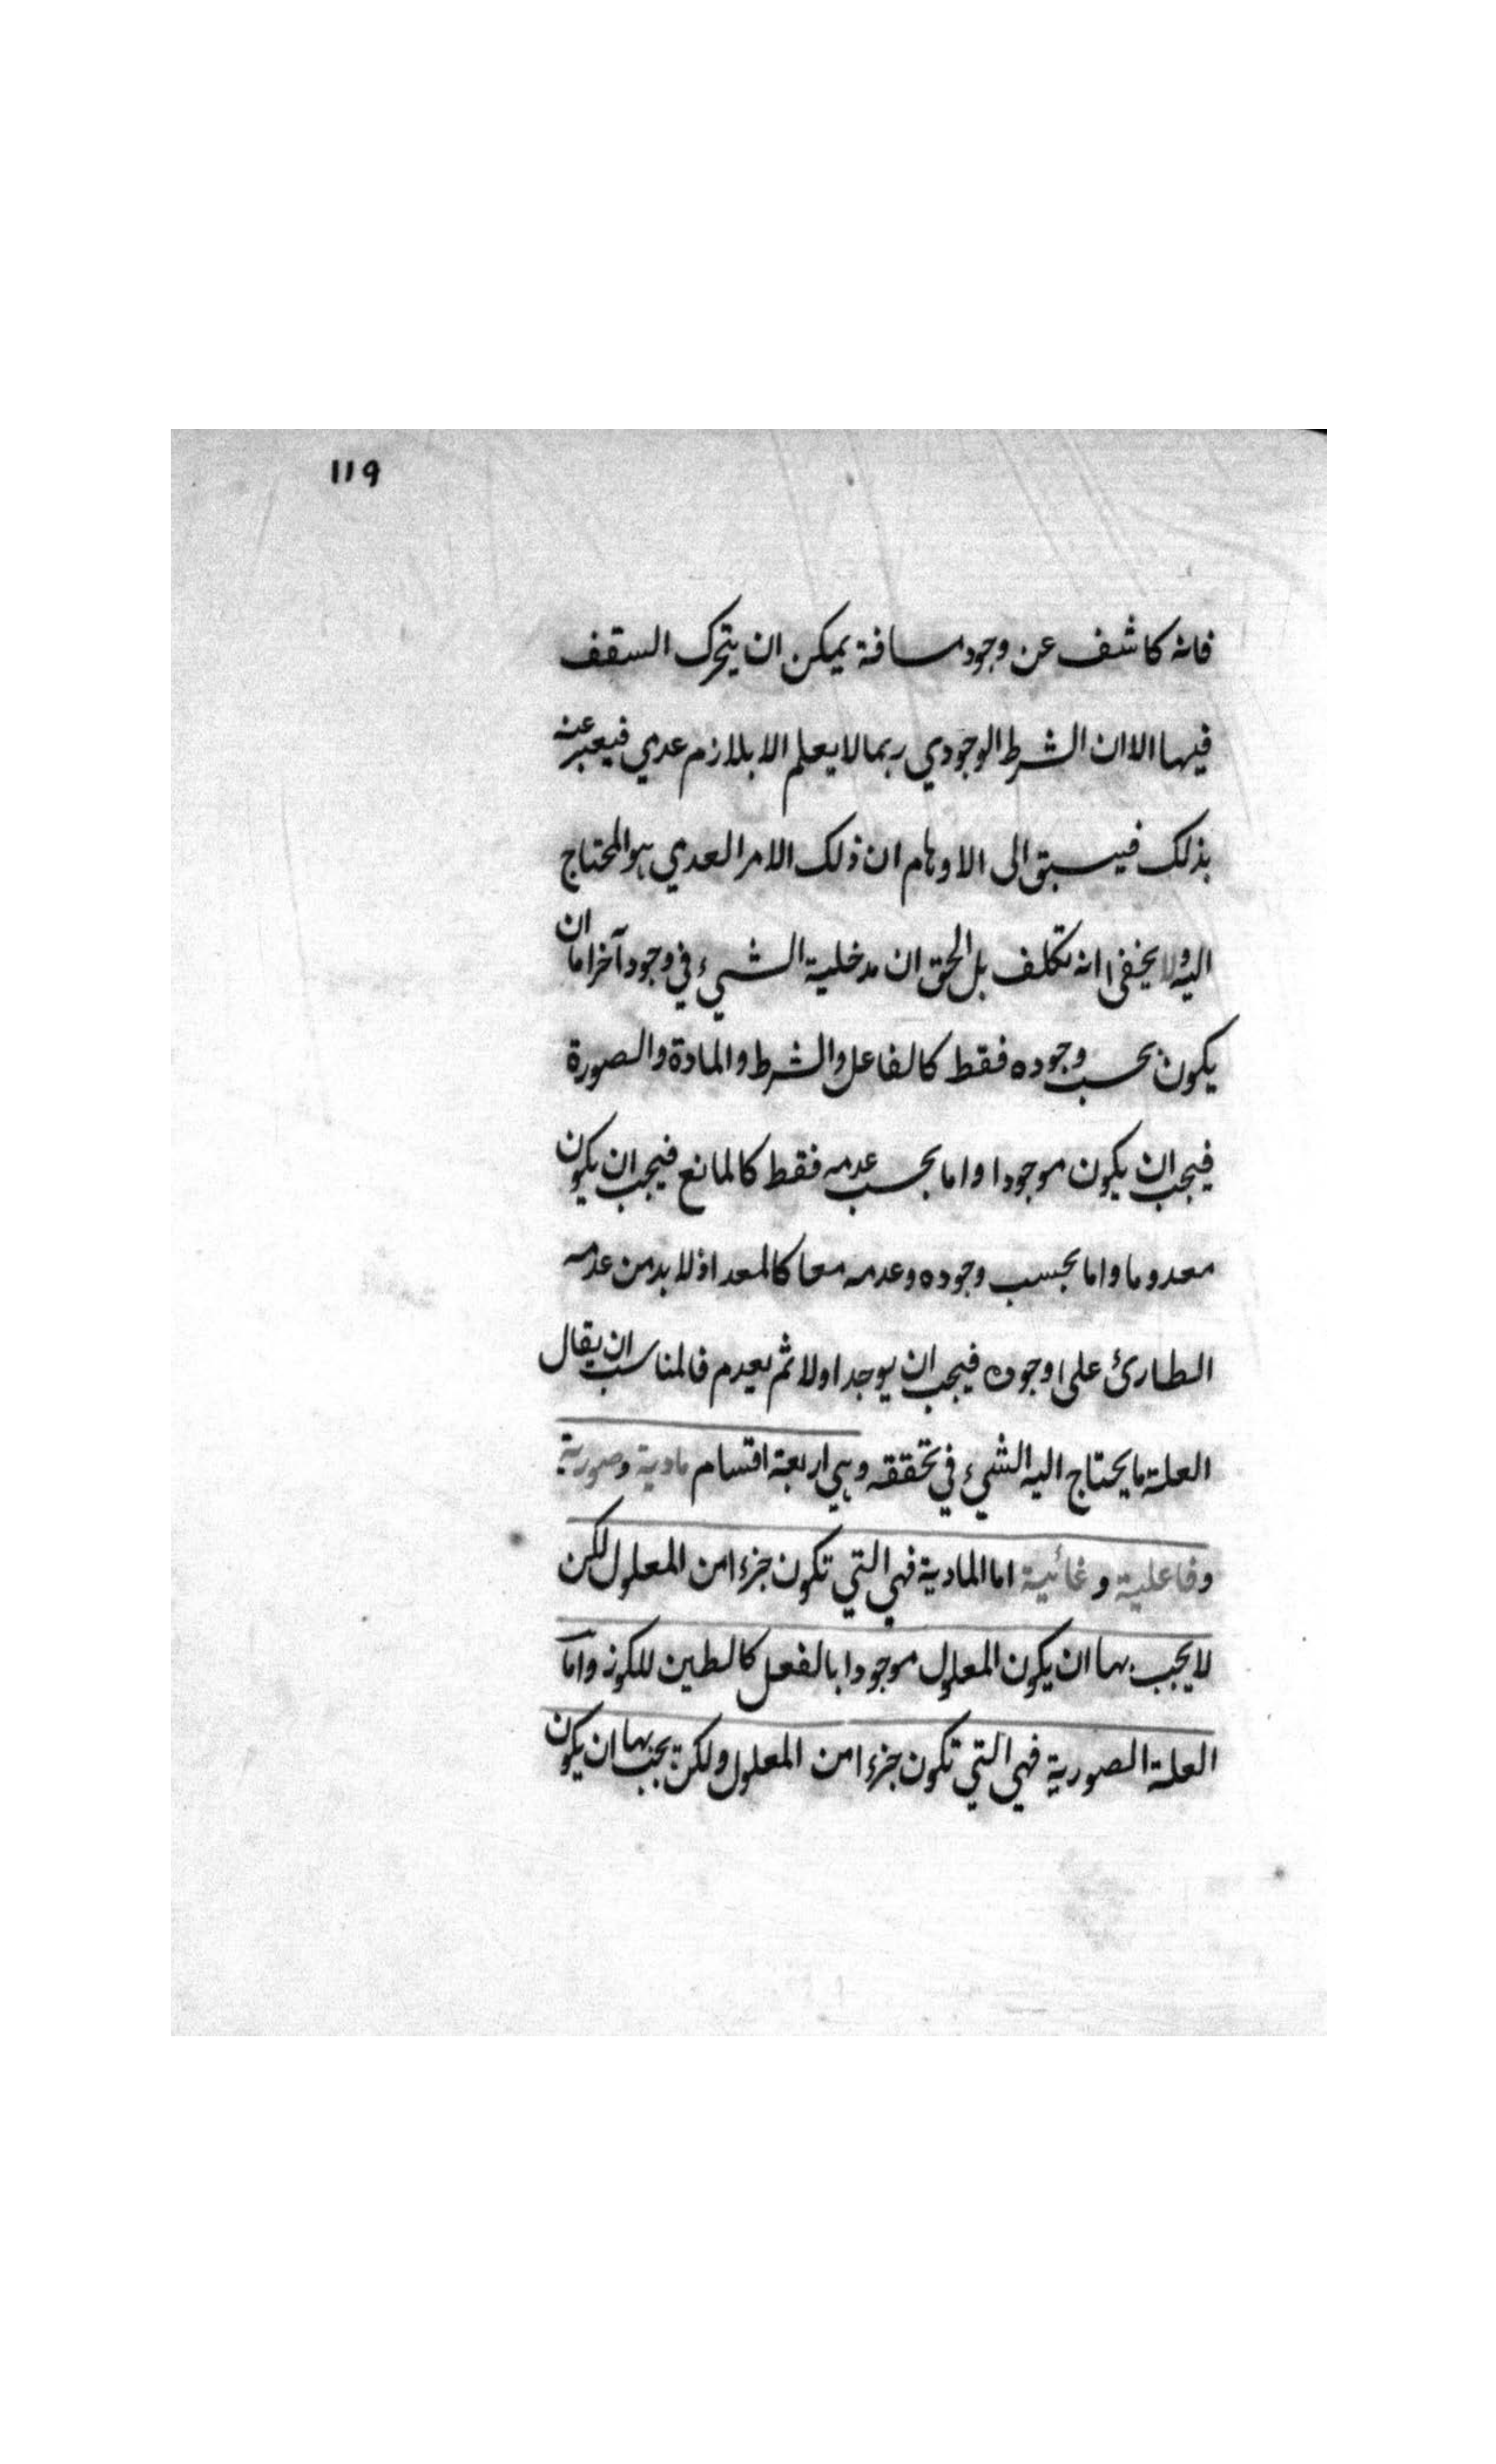 ١١٩
فانه كاشف عن وجود مسافة يمكن ان يتحرك السقف
فيها الا ان الشرط الوجودي ربما لا يعلم الا بلازم عدمي فيعبر عنه
بذلك فيسبق الى الاوهام ان ذلك الامر العدمي هو المحتاج
اليه ولا يخفى انه تكلف بل الحق ان مدخلية الشيء في وجود آخر اما ان
يكون بحسب وجوده فقط كالفاعل والشرط والمادة والصورة
فيجب ان يكون موجودا واما بحسب عدمه فقط كالمانع فيجب ان يكون
معدوما واما بحسب وجوده وعدمه معا كالمعد اذ لا بد من عدمه
الطارئ على وجوده فيجب ان يوجد اولا ثم يعدم فالمناسب ان يقال
العلة ما يحتاج اليه الشيء في تحققه وهي اربعة اقسام مادية وصورية
وفاعلية وغائية اما المادية فهي التي تكون جزءا من المعلول لكن
لا يجب بها ان يكون المعلول موجودا بالفعل كالطين للكوز واما
العلة الصورية فهي التي تكون جزءا من المعلول ولكن يجب بها ان يكون